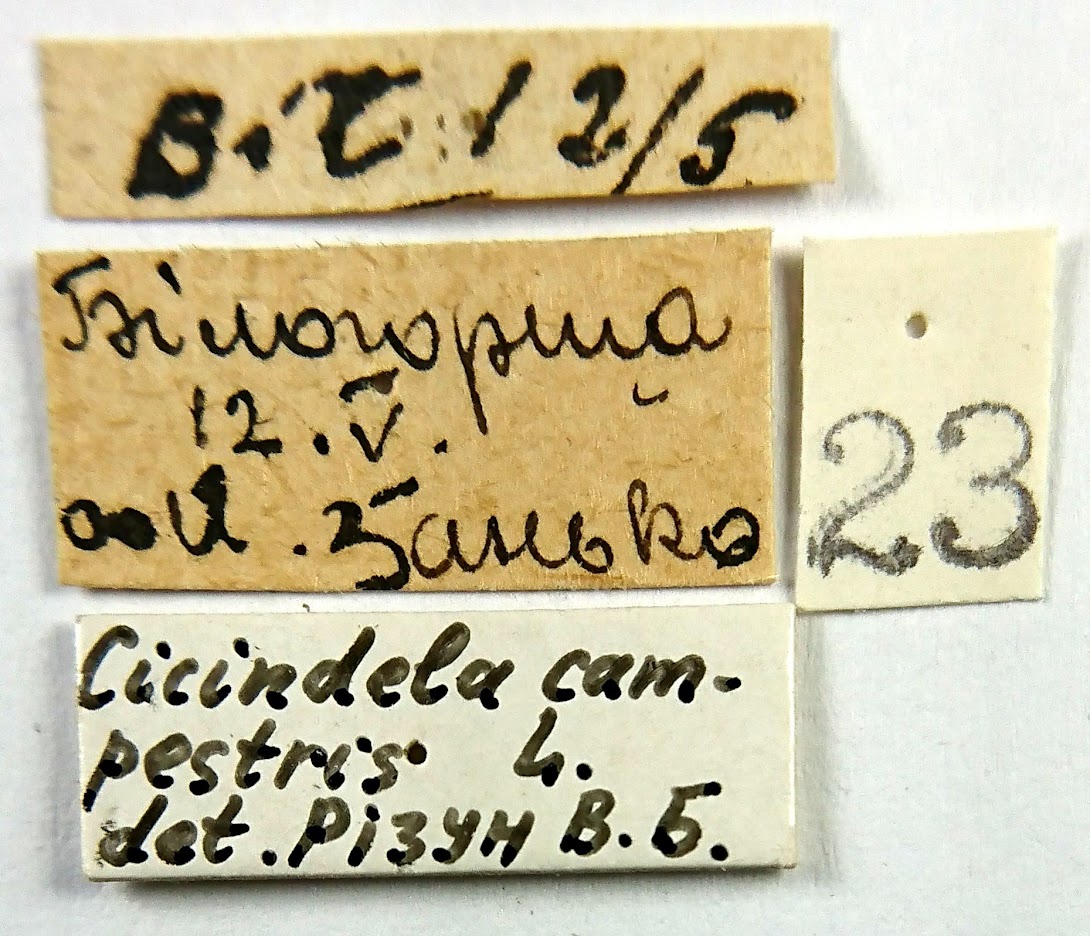 Віт: 12/5
Білогорща
12.V.
coll. Банько
23
Cicindela cam-
pestris L.
det. Різун В.Б.